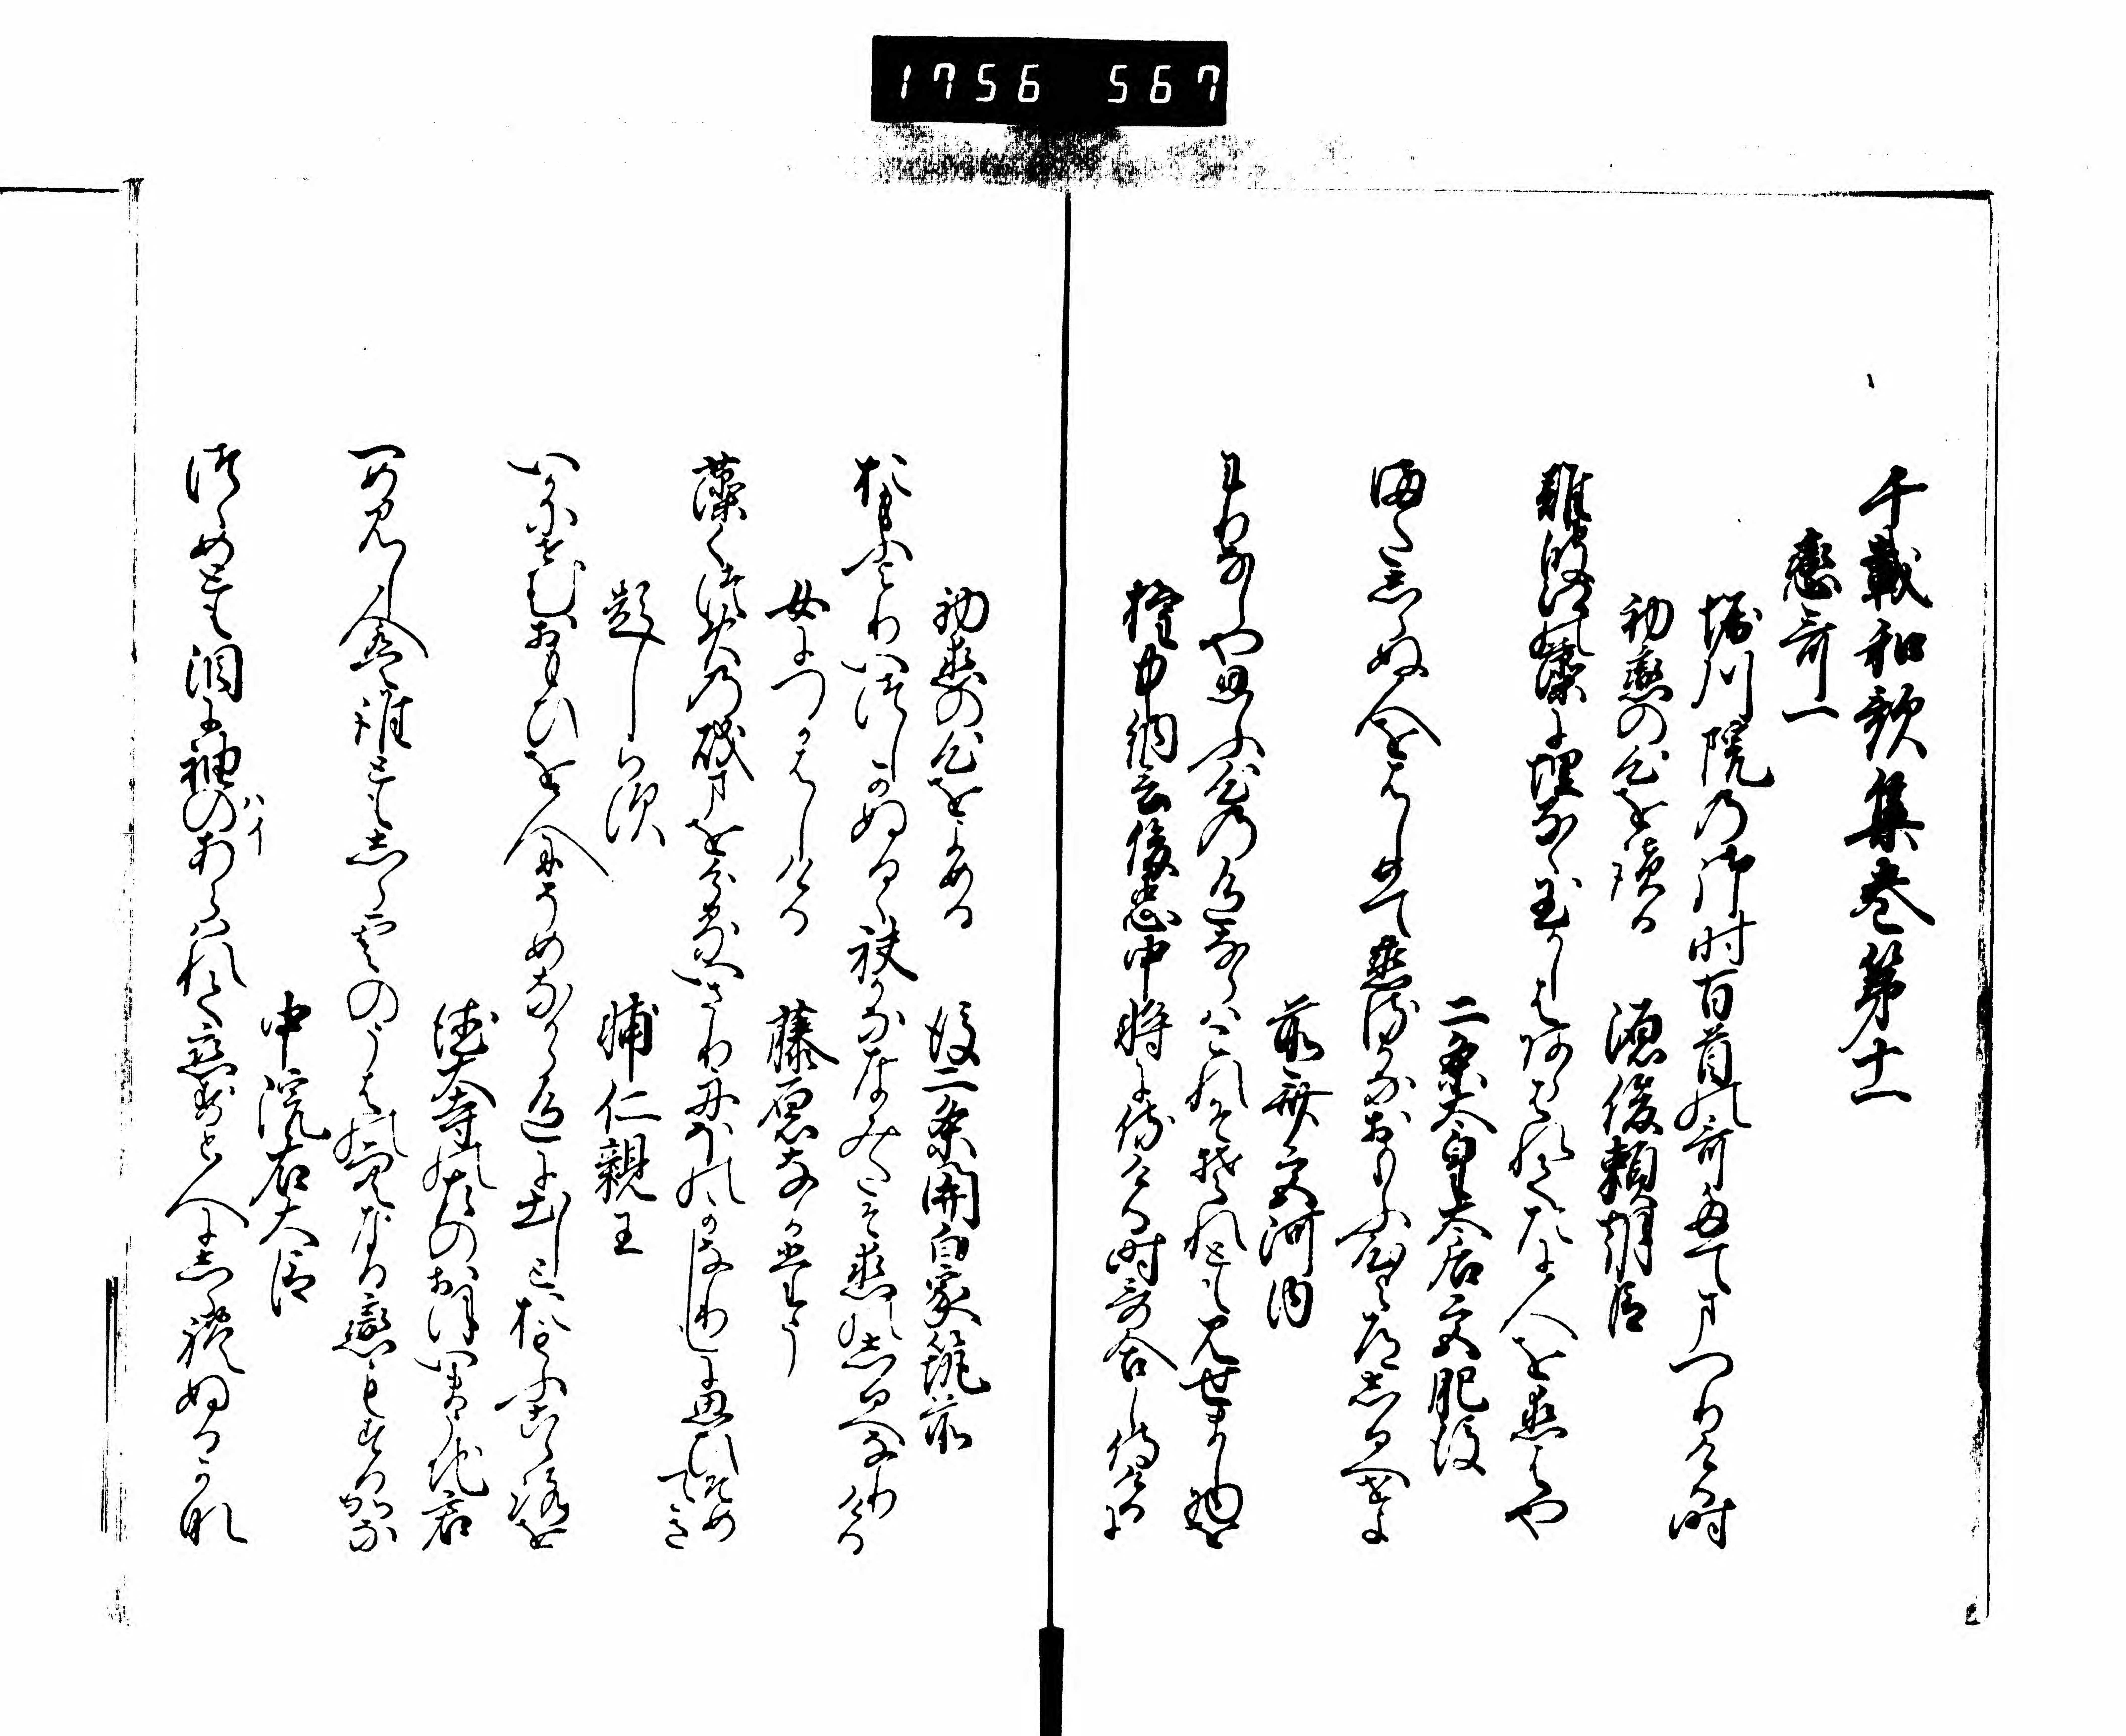 1756 567
千載和歌集巻第十一
恋哥一
堀川院の御時百首の哥奉てまつりける時
初恋の心を読る　源俊頼朝臣
難波江の藻に埋るゝ玉かしはあらはれてたに人を恋はや
二条太皇大后宮肥後
またしらぬ人をはしめて恋るかなおもふ心よ道しるへせよ
前斎宮河内
わりなしや思ふ心の色ならはこれそそれとも見せまし物を
権中納言俊忠中将に侍ける時哥合し侍けるに
初恋の心をよめる　後二条関白家筑前
おもふよりいつしかぬるゝ袂かななみたそ恋のしるへなりける
女につかはしける　藤原なかさね
藻くつ火の磯まを分るいさり舟ほのかなりしに思ひそめてき
題しらす　輔仁親王
いかにせむおもひを人にそめなから色に出しと忍ふ心を
徳大寺の左のおほいまうち君
一め見し人は誰ともしら雲のうはの空なる恋もする哉
中院右大臣
つゝめとも泪に袖のあらはれて恋すと人にしられぬるかな
ハイ